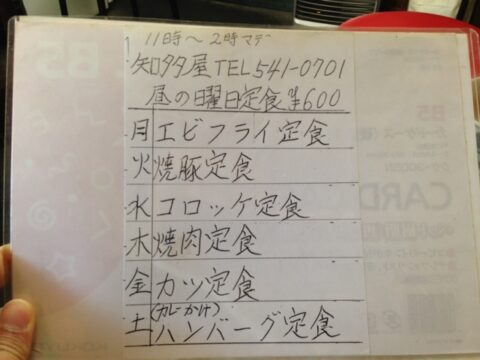 11時〜2時マデ
知多屋TEL541-0701
昼の日曜日定食¥600
月エビフライ定食
火焼豚定食
水コロッケ定食
木焼肉定食
金カツ定食
(カレーかけ)
土ハンバーグ定食
B5
B5
CARD